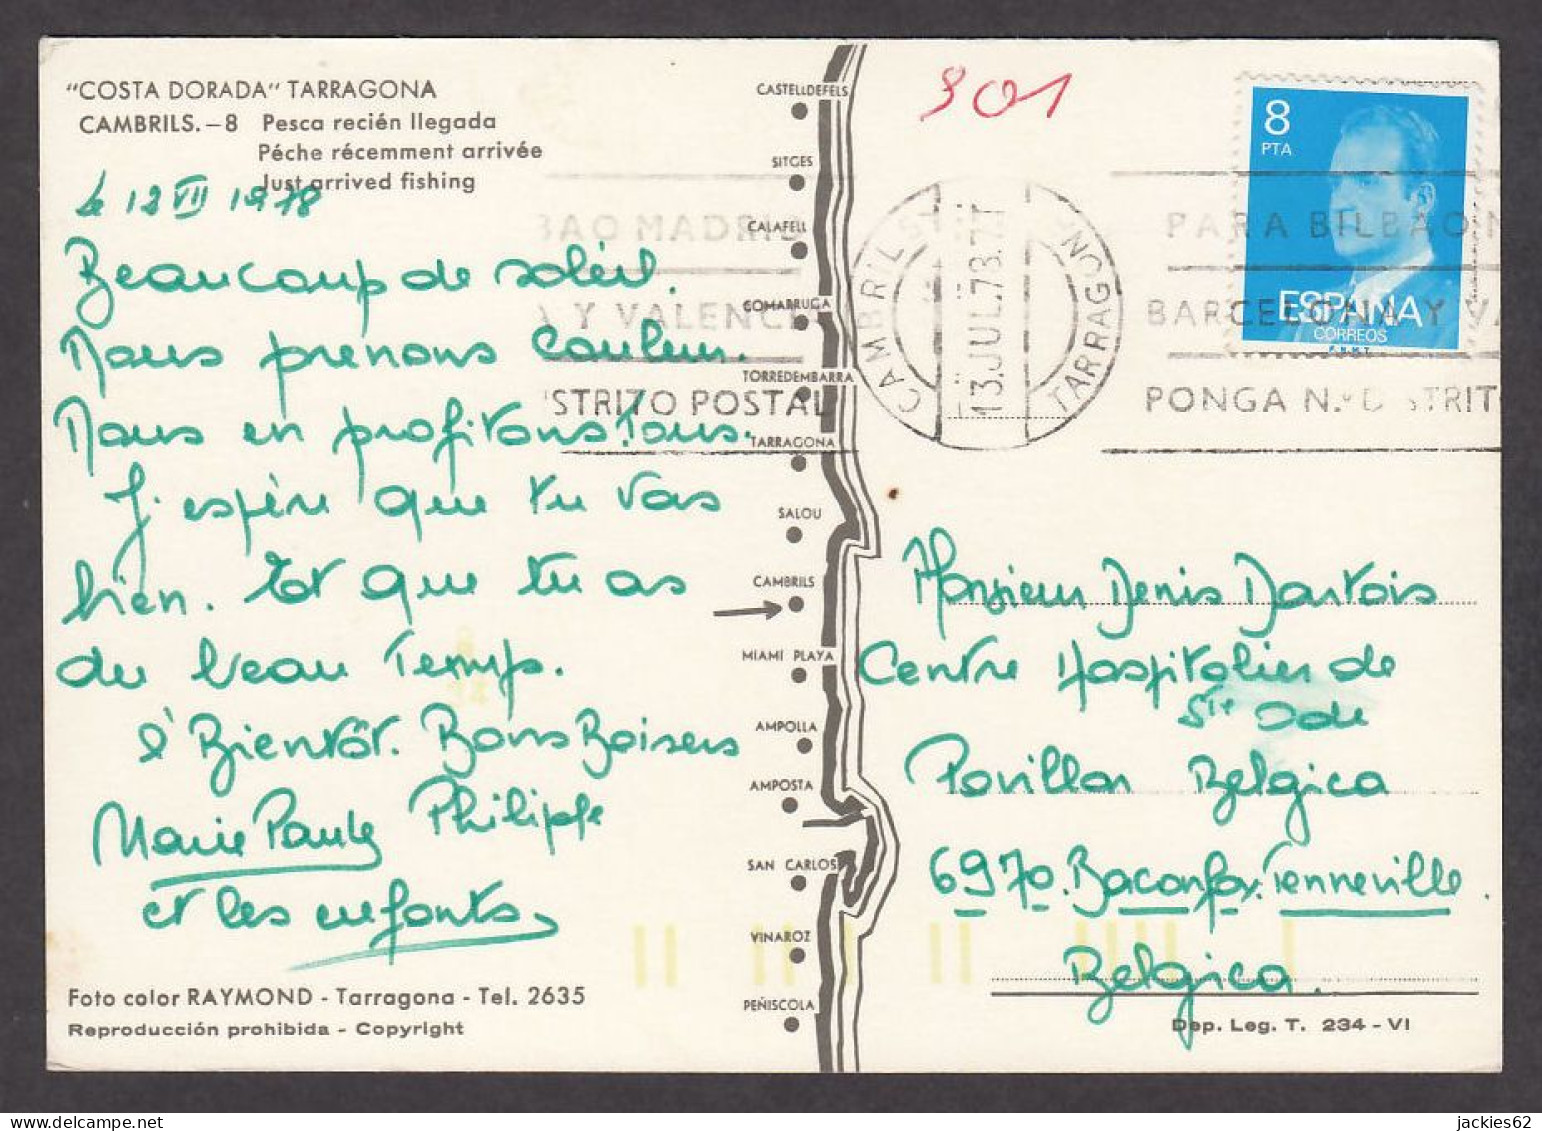 "COSTA DORADA" TARRAGONA
CAMBRILS.-8 Pesca recién llegada
Péche récemment arrivée
Just arrived fishing
Le 12 VII 1978
Beaucoup de soleil.
Nous prenons couleur.
Nous en profitons Tous.
J'espère que tu vas
bien. Et que tu as
du beau Temps.
à Bientôt. Bons Baisers
Marie Paule Philippe
et les enfants
Foto color RAYMOND - Tarragona - Tel. 2635
Reproducción prohibida - Copyright
CASTELLDEFELS
SITGES
CALAFELL
COMARRUGA
TORREDEMBARRA
TARRAGONA
SALOU
CAMBRILS
MIAMI PLAYA
AMPOLLA
AMPOSTA
SAN CARLOS
VINAROZ
PEÑISCOLA
BAO MADRID
A Y VALENCI
STRITO POSTAL
301
CAMBRILS
13.JUL.78
TARRAGONA
PARA BILBAO M
BARCELONA Y VA
PONGA N.º DISTRITO
8
PTA
ESPAÑA
CORREOS
F.N.M.T.
Monsieur Denis Dartois
Centre Hospitalier de
Ste Ode
Pavillon Belgica
6970. Baconfoy. Tenneville.
Belgica.
Dep. Leg. T. 234 - VI
jackies62